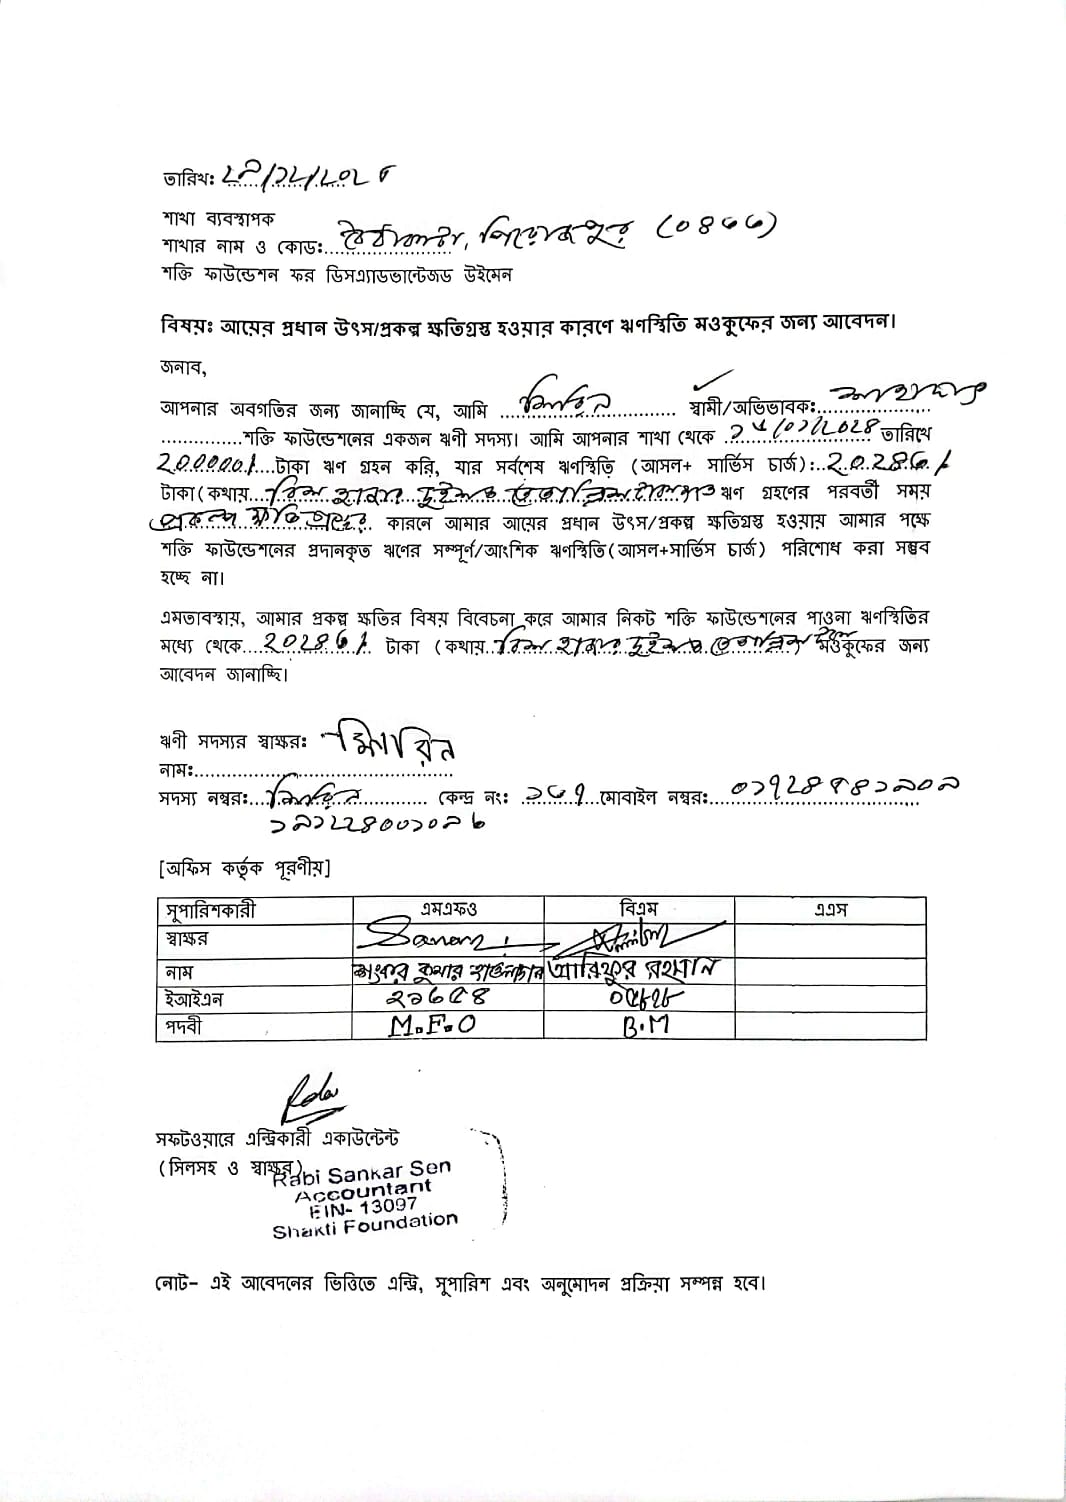 তারিখ: ২৭/১২/২০২৫
শাখা ব্যবস্থাপক
শাখার নাম ও কোড: বৈঠাকাটা, পিরোজপুর (০৪৬৬)
শক্তি ফাউন্ডেশন ফর ডিসএ্যাডভান্টেজড উইমেন
বিষয়: আয়ের প্রধান উৎস/প্রকল্প ক্ষতিগ্রস্ত হওয়ার কারণে ঋণস্থিতি মওকুফের জন্য আবেদন।
জনাব,
আপনার অবগতির জন্য জানাচ্ছি যে, আমি শিরিন স্বামী/অভিভাবক:
শক্তি ফাউন্ডেশনের একজন ঋণী সদস্য। আমি আপনার শাখা থেকে তারিখে
টাকা ঋণ গ্রহন করি, যার সর্বশেষ ঋণস্থিতি (আসল+ সার্ভিস চার্জ):.. ২০২৪৩/
টাকা (কথায়.. বিশ হাজার দুইশত তেতাল্লিশ টাকা মাত্র ঋণ গ্রহণের পরবর্তী সময়
প্রকল্প ক্ষতি গ্রস্থের. কারনে আমার আয়ের প্রধান উৎস/প্রকল্প ক্ষতিগ্রস্ত হওয়ায় আমার পক্ষে
শক্তি ফাউন্ডেশনের প্রদানকৃত ঋণের সম্পূর্ণ/আংশিক ঋণস্থিতি(আসল+সার্ভিস চার্জ) পরিশোধ করা সম্ভব
হচ্ছে না।
এমতাবস্থায়, আমার প্রকল্প ক্ষতির বিষয় বিবেচনা করে আমার নিকট শক্তি ফাউন্ডেশনের পাওনা ঋণস্থিতির
মধ্যে থেকে.. ২০২৪৩/. টাকা (কথায়.. বিশ হাজার দুইশত তেতাল্লিশ মওকুফের জন্য
আবেদন জানাচ্ছি।
ঋণী সদস্যর স্বাক্ষর: শিরিন
নাম:
সদস্য নম্বর:.. শিরিন কেন্দ্র নং: ১৬৭ মোবাইল নম্বর:
[অফিস কর্তৃক পূরণীয়]
সুপারিশকারী এমএফও বিএম এএস
স্বাক্ষর
নাম কুমার হাওলাদার আরিফুর রহমান
ইআইএন ২১৬৫৪
পদবী M.F.O B.M
সফটওয়ারে এন্ট্রিকারী একাউন্টেন্ট
(সিলসহ ও স্বাক্ষর)
Rabi Sankar Sen
Accountant
EIN- 13097
Shakti Foundation
নোট- এই আবেদনের ভিত্তিতে এন্ট্রি, সুপারিশ এবং অনুমোদন প্রক্রিয়া সম্পন্ন হবে।